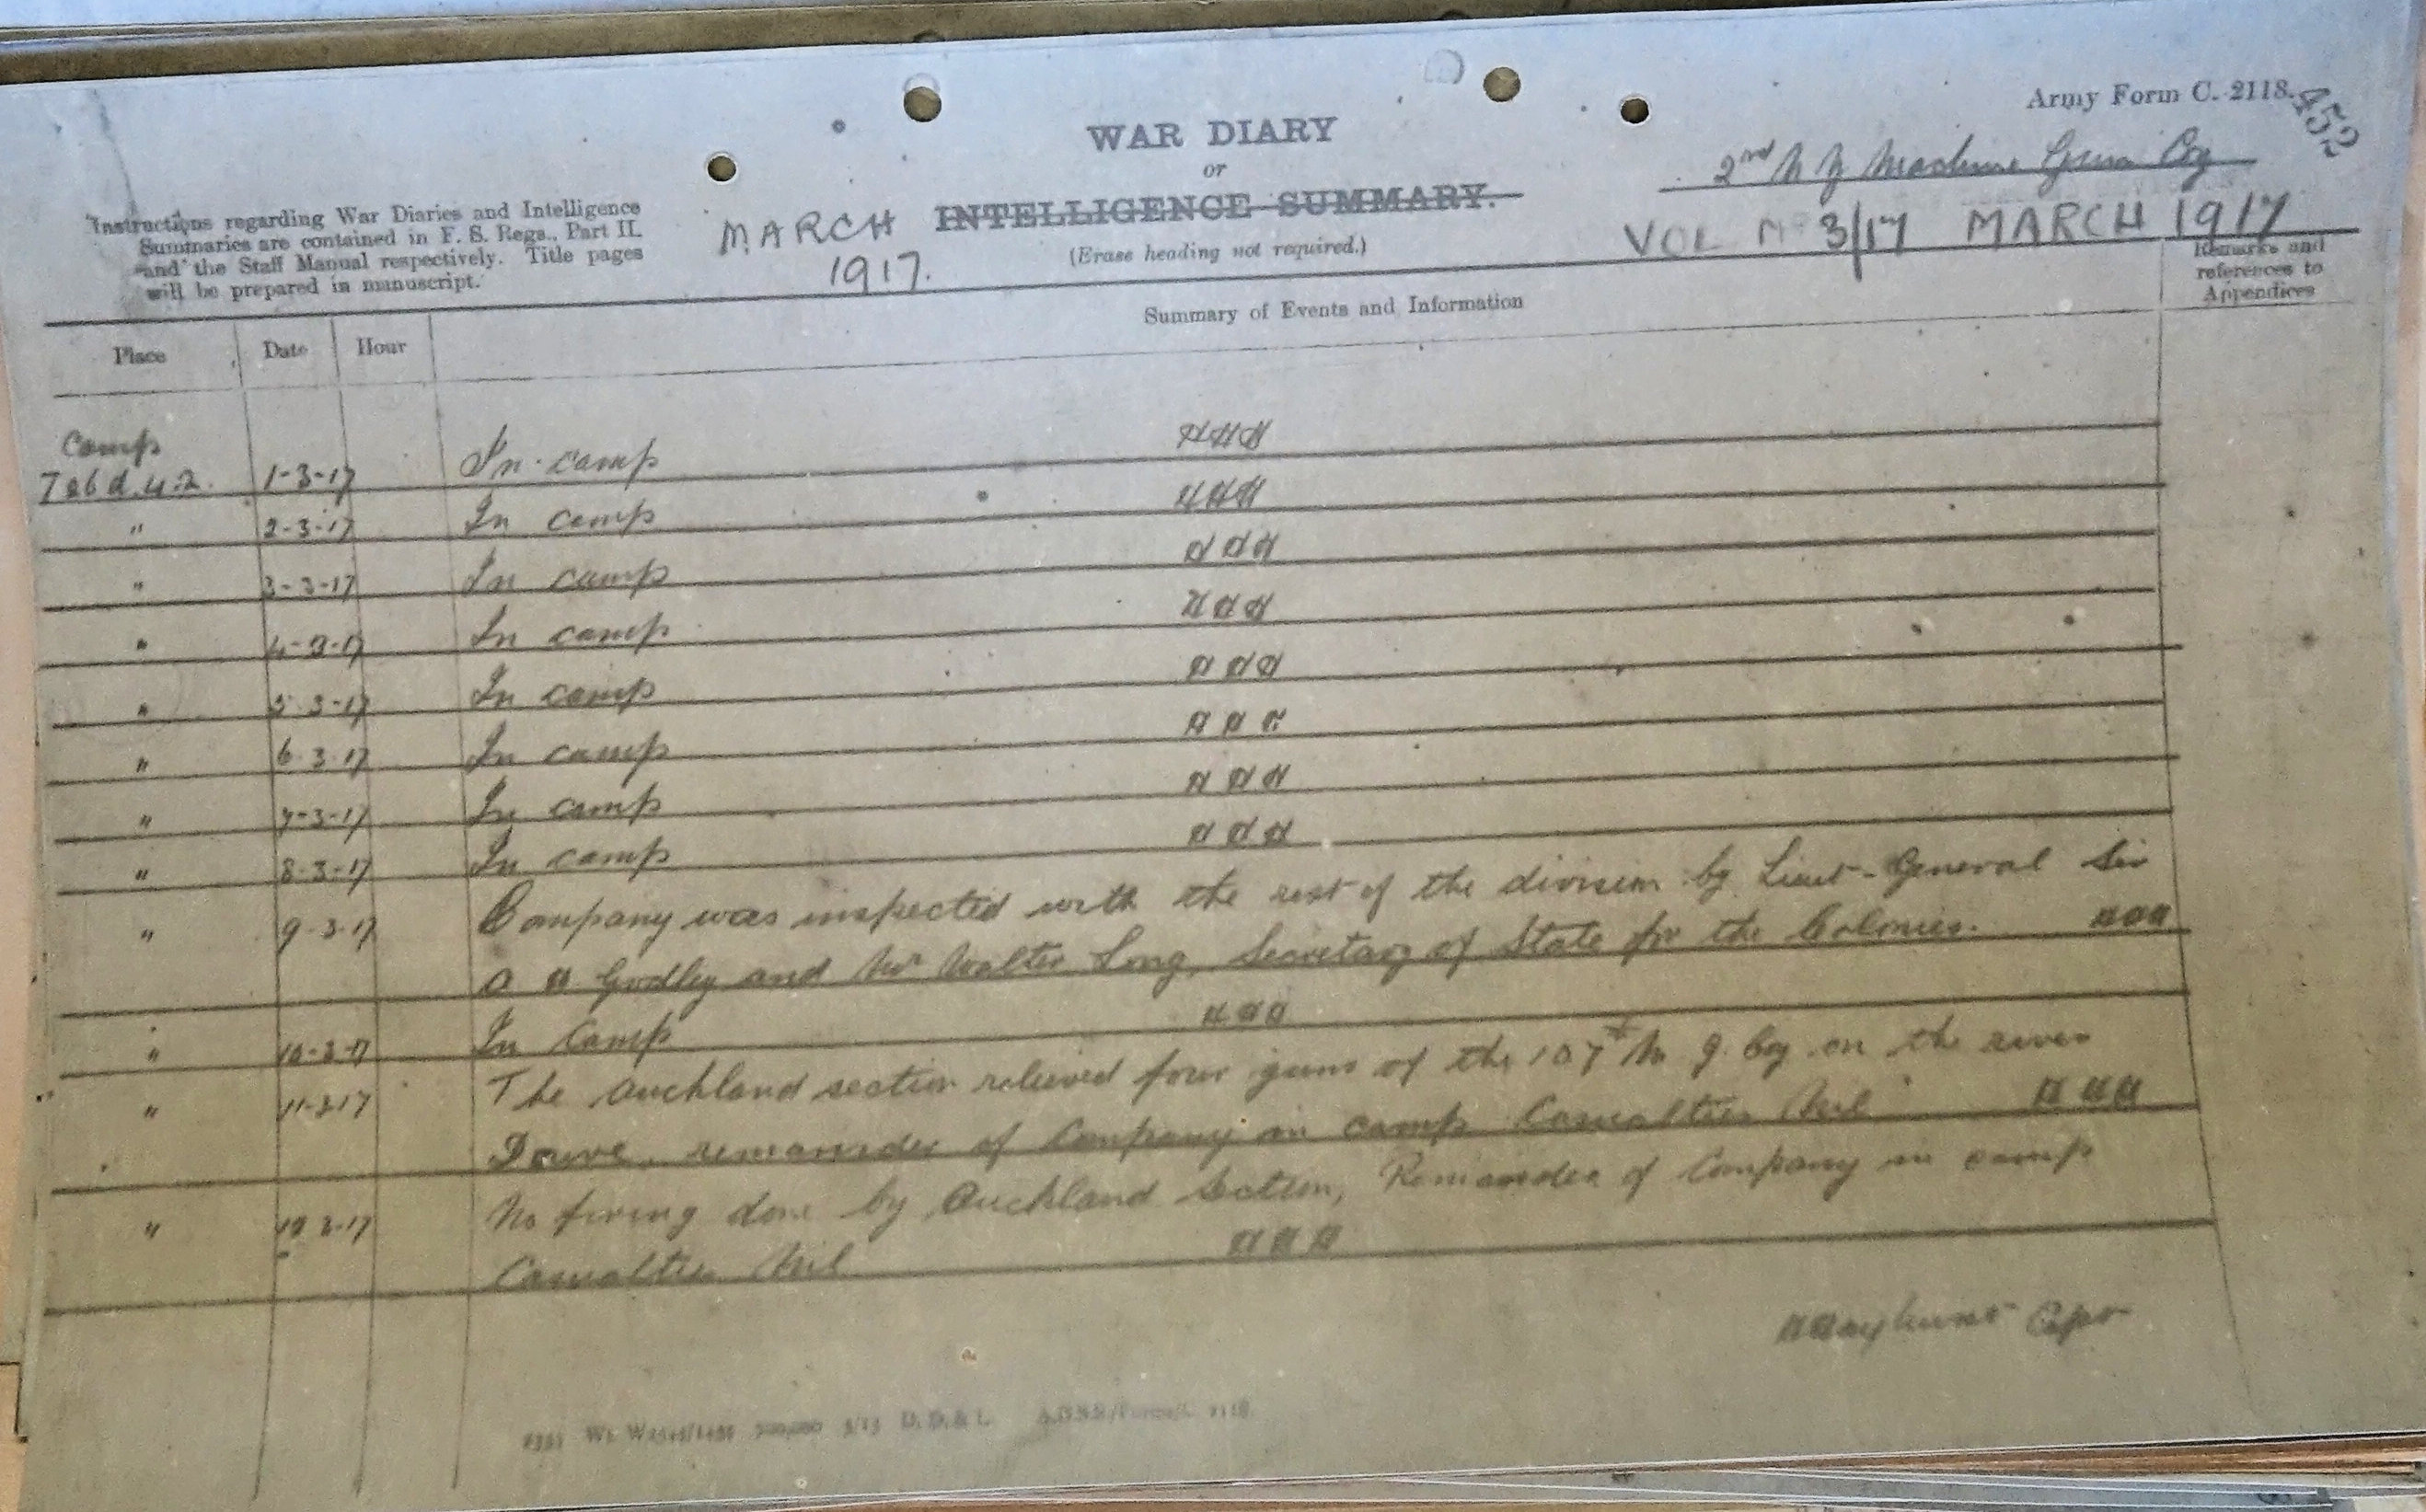 Army Form C. 2118.
452
WAR DIARY
or
INTELLIGENCE SUMMARY.
(Erase heading not required.)
Instructions regarding War Diaries and Intelligence
Summaries are contained in F. S. Regs., Part II.
and the Staff Manual respectively. Title pages
will be prepared in manuscript.
MARCH
1917.
2nd N Z Machine Gun Coy
VOL No 3/17 MARCH 1917
Place Date Hour Summary of Events and Information Remarks and references to Appendices
Camp
1-3-17 In camp
" 2-3-17 In camp
" 3-3-17 In camp
" 4-3-17 In camp
" 5-3-17 In camp
" 6-3-17 In camp
" 7-3-17 In camp
" 8-3-17 In camp
" 9-3-17 Company was inspected with the rest of the division by Lieut-General Sir
A Godley and Mr Walter Long, Secretary of State for the Colonies.
" 10-3-17 In Camp
" 11-3-17 The Auckland section relieved four guns of the 107th M G. Coy on the river
Douve, remainder of Company in camp Casualties Nil
" 12-3-17 No firing done by Auckland Section, Remainder of Company in camp
Casualties Nil